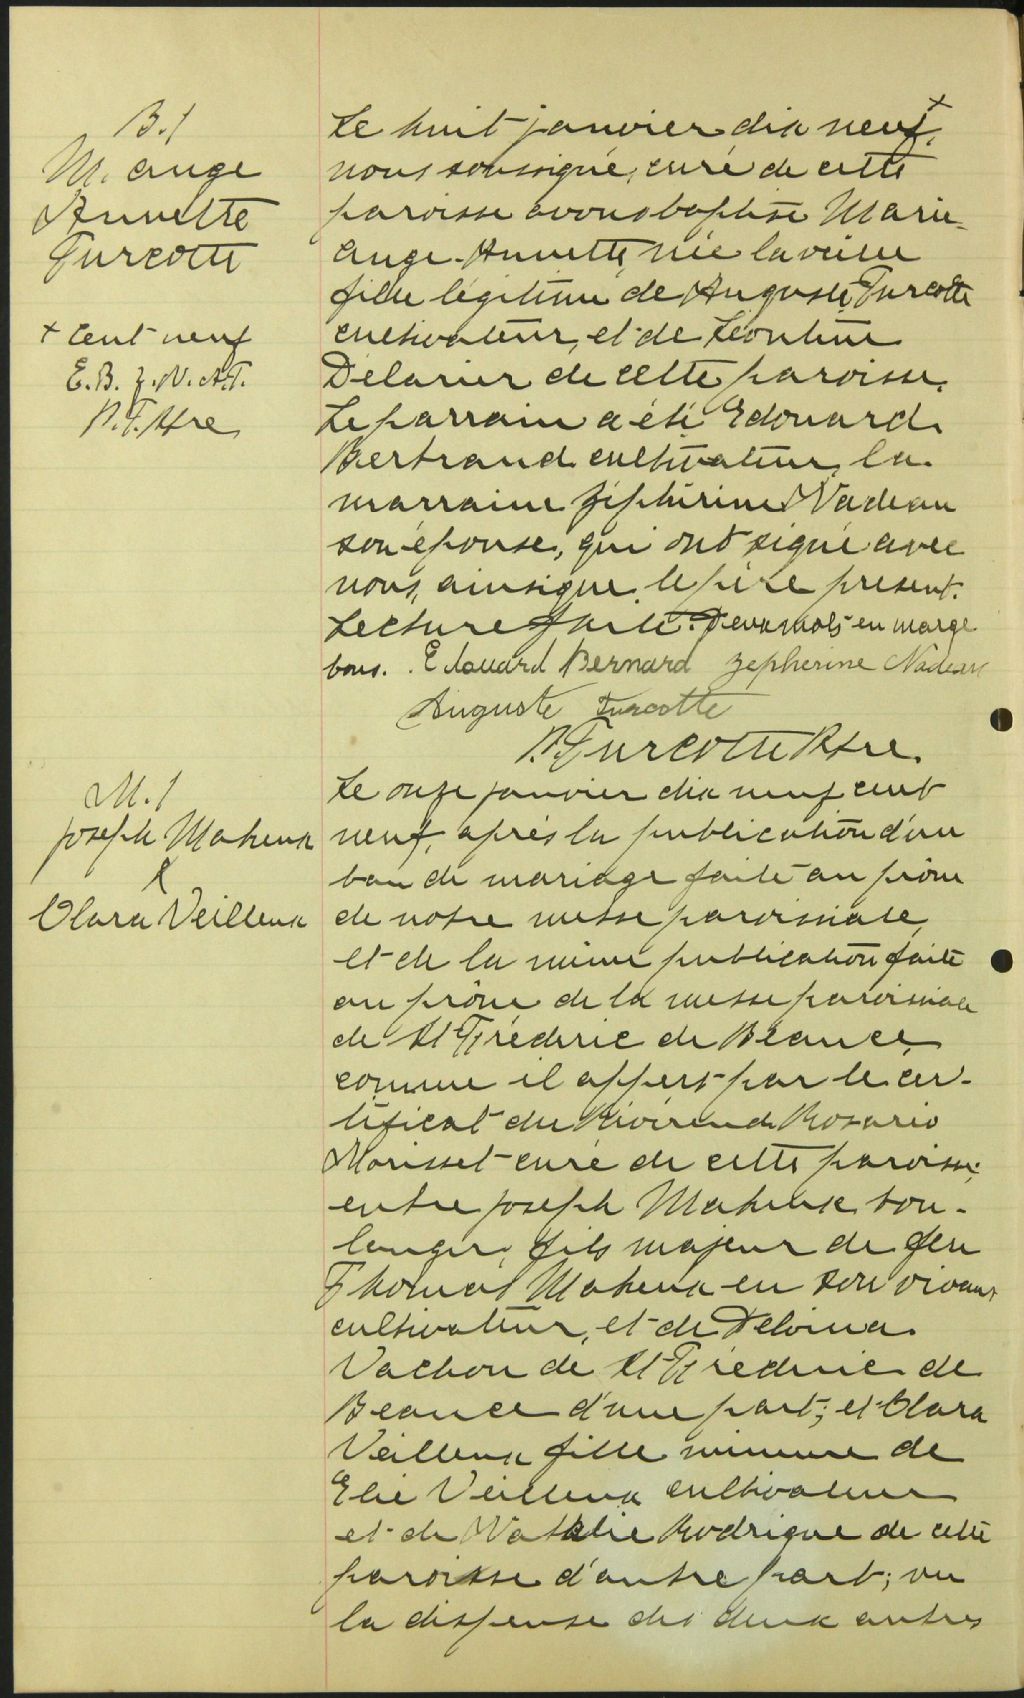 B./
M. ange
Annette
Turcotte
+ cent neuf
E.B. Z.N. A.T.
P.T. Ptre
Le huit janvier dix neuf, +
nous soussigné, curé de cette
paroisse avons baptisé Marie-
Ange-Annette, née la veille
fille légitime de Auguste Turcotte
cultivateur, et de Léontine
Délarier de cette paroisse.
Le parrain a été Edouard
Bertrand cultivateur, la
marraine Zéphirine Nadeau
son épouse, qui ont signé avec
nous, ainsi que le père présent.
Lecture faite. Deux mots en marge
bons. Edouard Bernard Zepherine Nadeau
Auguste Turcotte
P. Turcotte Ptre.
M./
Joseph Maheux
&
Clara Veilleux
Le onze janvier dix neuf cent
neuf, après la publication d'un
ban de mariage faite au prône
de notre messe paroissiale,
et de la même publication faite
au prône de la messe paroissiale
de St Fréderic de Beauce,
comme il appert par le cer-
tificat du Révérend Rosario
Morisset curé de cette paroisse;
entre Joseph Maheux bou-
langer, fils majeur de feu
Thomas Maheux en son vivant
cultivateur, et de Delvina
Vachon de St Fréderic de
Beauce d'une part; et Clara
Veilleux fille mineure de
Elie Veilleux cultivateur
et de Natalie Rodrigue de cette
paroisse d'autre part; vu
la dispense des deux autres